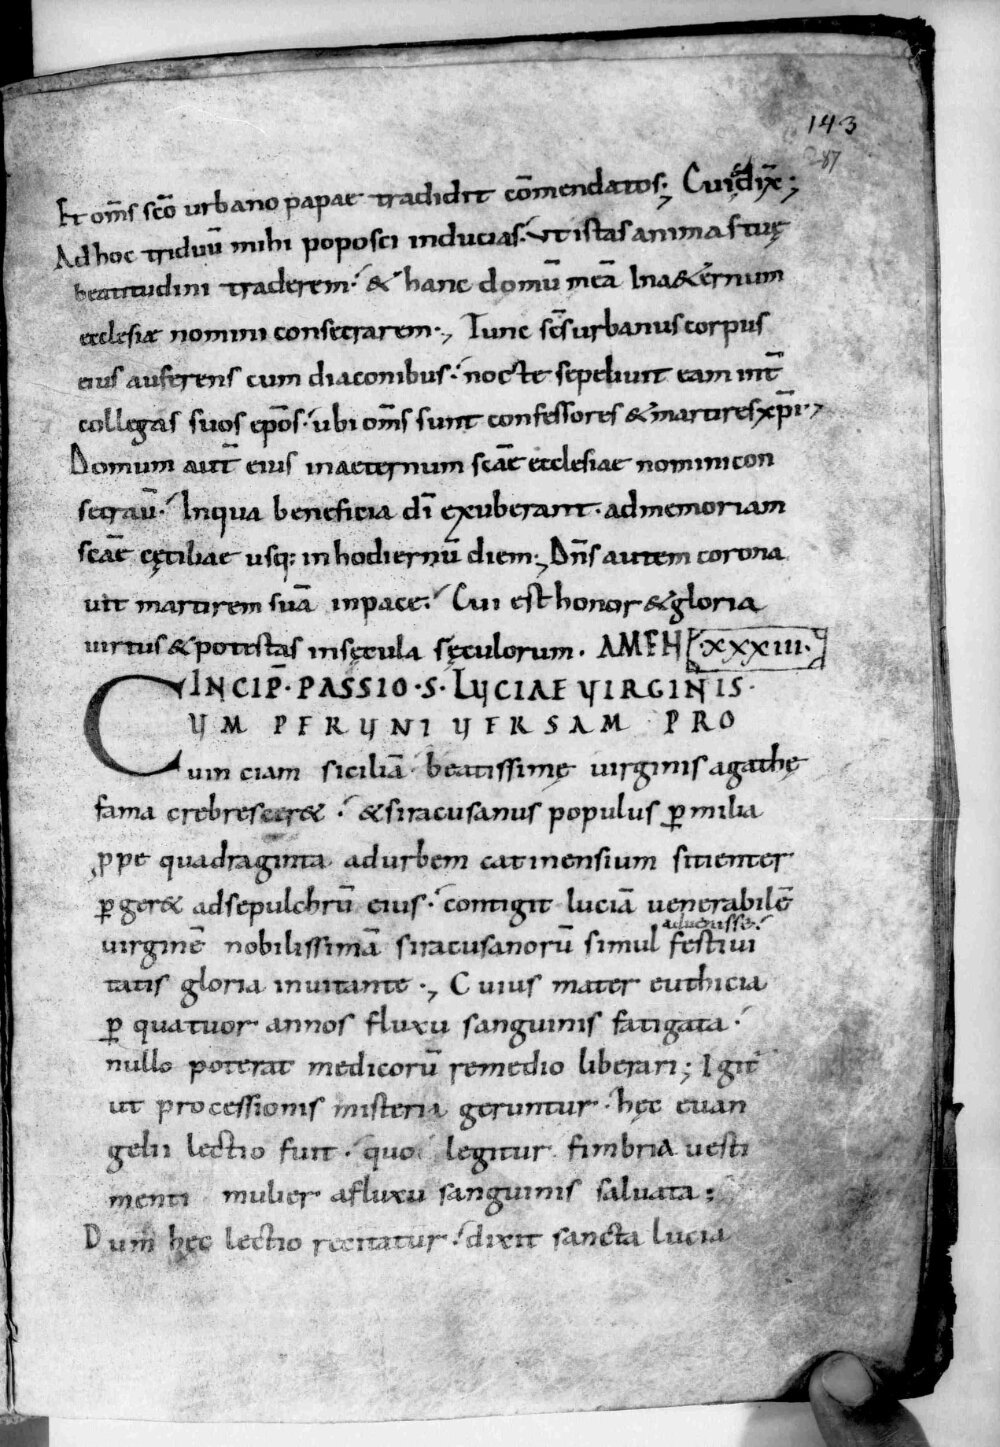 143
287
Et om̅s sc̅o urbano papae tradidit co̅mendatos; Cui &dix̅;
Ad hoc triduu̅ mihi poposci inducias. ut istas animas tuę
beatitudini traderem. & hanc domu̅ mea̅ Ina&ernum
ecclesiae nomini consecrarem., Tunc sc̅s urbanus corpus
eius auferens cum diaconibus. nocte sepeliuit eam int̅
collegas suos ep̅os. ubi om̅s sunt confessores & martires xp̅i.,
Domum aut̅ eius inaeternum sc̅ae ecclesiae nomini con
secrau̅. Inqua beneficia di̅ exuberant. admemoriam
sc̅ae cęciliae usq; in hodiernu̅ diem., Dn̅s autem corona
uit martirem sua̅ inpace. Cui est honor & gloria
uirtus & potestas insęcula sęculorum. AMEN .XXXIII.
INCIP̅. PASSIO. S. LUCIAE UIRGINIS.
CUM PER UNIUERSAM PRO
uin ciam sicilia̅ beatissimę uirginis agathę
fama crebresceret. & siracusanus populus ꝑ milia
ꝓpe quadraginta adurbem catinensium sitienter
ꝑger& adsepulchru̅ eius. contigit lucia̅ uenerabile̅
aduenisse.
uirgine̅ nobilissima̅ siracusanoru̅ simul festiui
tatis gloria inuitante., Cuius mater euthicia
ꝑ quatuor annos fluxu sanguinis fatigata.
nullo poterat medicoru̅ remedio liberari; Igit̅
ut processionis misteria geruntur. hęc euan
gelii lectio fuit. quo legitur fimbria uesti
menti mulier afluxu sanguinis saluata;
Dum hęc lectio recitatur. dixit sancta lucia